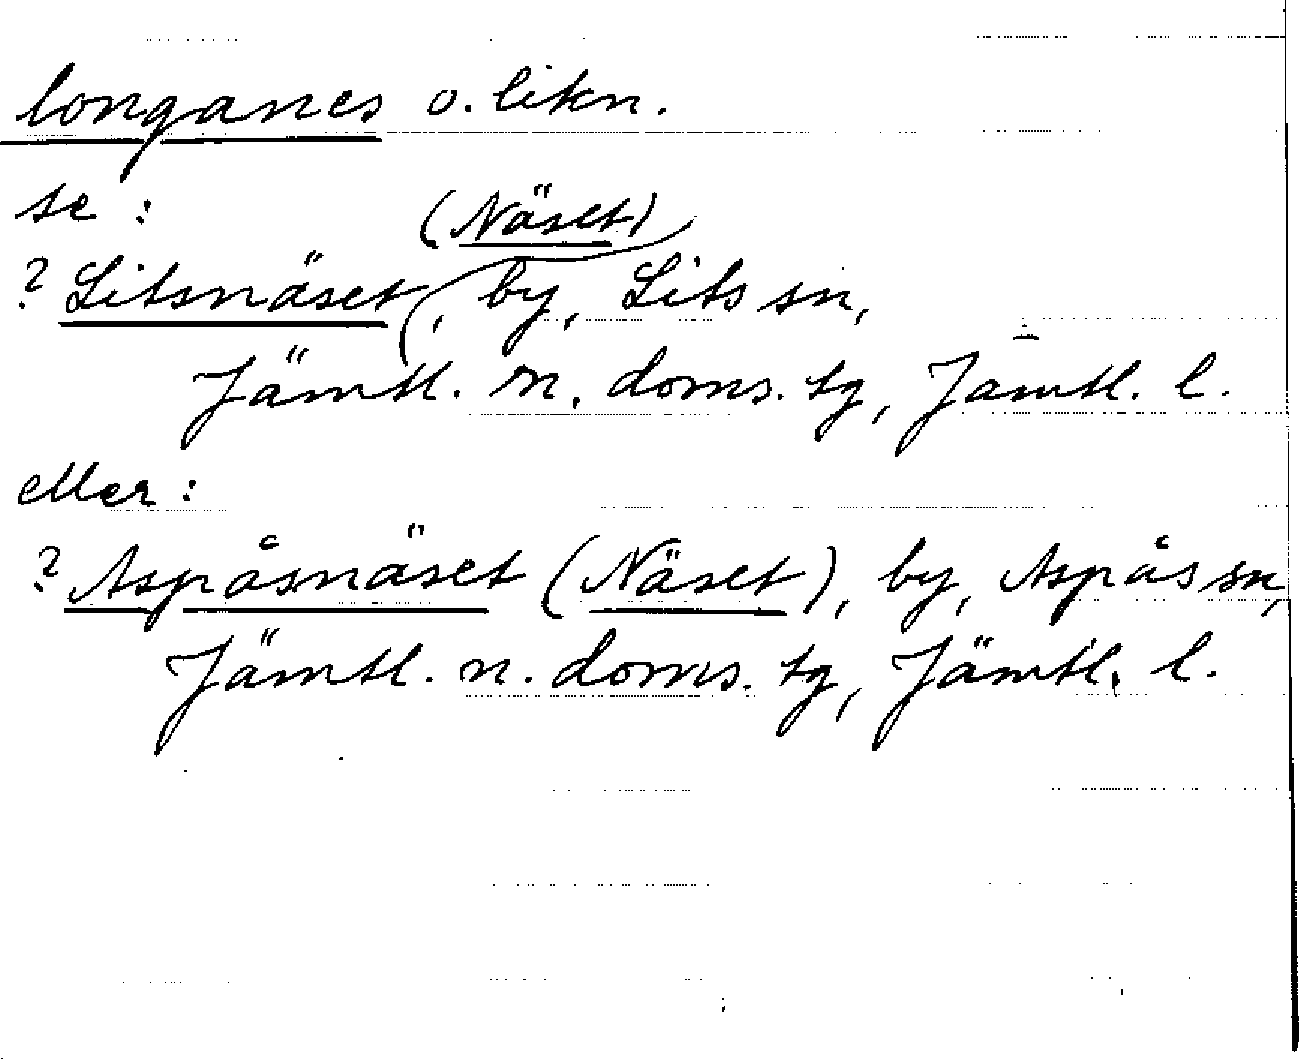 longanes o. likn.
se:
(Näset)
? Litsnäset, by, Lits sn,
Jämtl. n. doms. tg, Jämtl. l.
eller:
? Aspåsnäset (Näset), by, Aspås sn,
Jämtl. n. doms. tg, Jämtl. l.